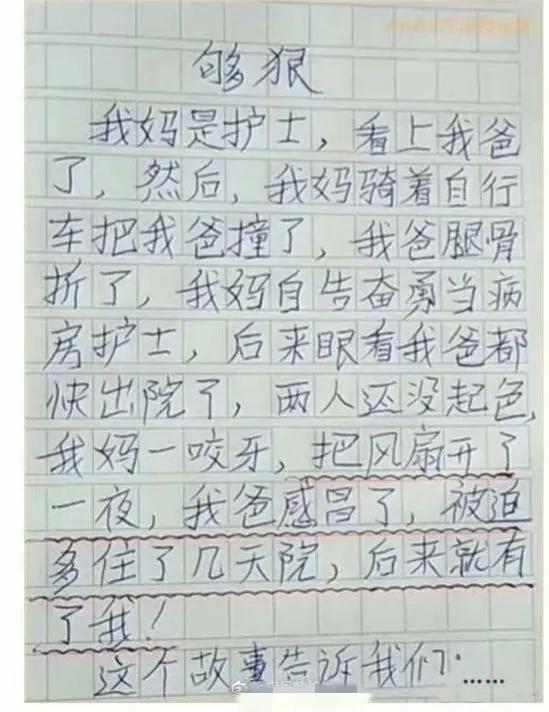 够狠
我妈是护士，看上我爸
了，然后，我妈骑着自行
车把我爸撞了，我爸腿骨
折了，我妈自告奋勇当病
房护士，后来眼看我爸都
快出院了，两人还没起色，
我妈一咬牙，把风扇开了
一夜，我爸感昌了，被迫
多住了几天院，后来就有
了我！
这个故事告诉我们……